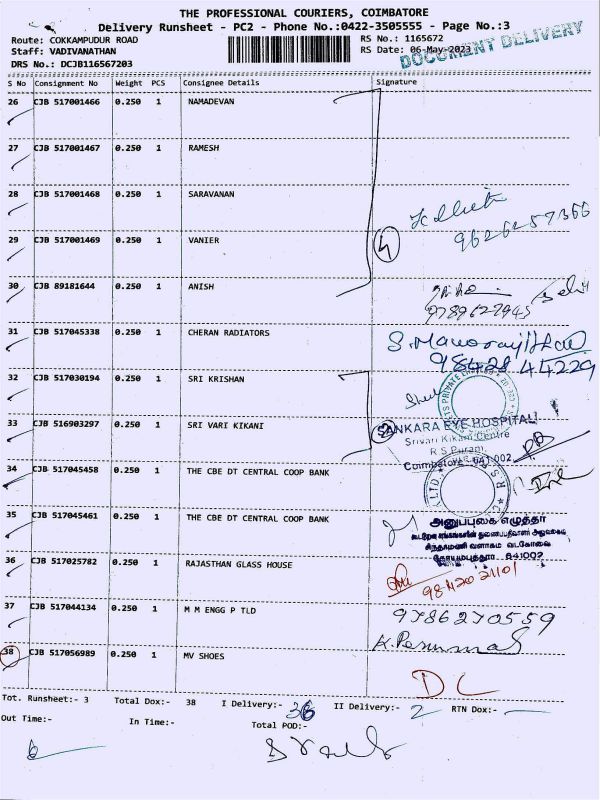 THE PROFESSIONAL COURIERS, COIMBATORE
Delivery Runsheet - PC2 - Phone No.:0422-3505555 - Page No.:3
Route: COKKAMPUDUR ROAD RS No.: 1165672
Staff: VADIVANATHAN RS Date: 06-May-2023
DRS No.: DCJB116567203
DOCUMENT DELIVERY
S No Consignment No Weight PCS Consignee Details Signature
26 CJB 517001466 0.250 1 NAMADEVAN
27 CJB 517001467 0.250 1 RAMESH
28 CJB 517001468 0.250 1 SARAVANAN
9626257366
29 CJB 517001469 0.250 1 VANIER
4
30 CJB 89181644 0.250 1 ANISH
9789627945
31 CJB 517045338 0.250 1 CHERAN RADIATORS
98428 44229
32 CJB 517030194 0.250 1 SRI KRISHAN
33 CJB 516903297 0.250 1 SRI VARI KIKANI
2
SANKARA EYE HOSPITAL
Srivari Kikani Centre
R S Puram,
Coimbatore - 641 002
34 CJB 517045458 0.250 1 THE CBE DT CENTRAL COOP BANK
35 CJB 517045461 0.250 1 THE CBE DT CENTRAL COOP BANK
அனுப்புகை எழுத்தர்
சிந்தாமணி வளாகம் வடகோவை
கோயம்புத்தூர் 641002
36 CJB 517025782 0.250 1 RAJASTHAN GLASS HOUSE
37 CJB 517044134 0.250 1 M M ENGG P TLD
9786270559
38 CJB 517056989 0.250 1 MV SHOES
DC
Tot. Runsheet:- 3 Total Dox:- 38 I Delivery:- 36 II Delivery:- 2 RTN Dox:-
Out Time:- In Time:- Total POD:-